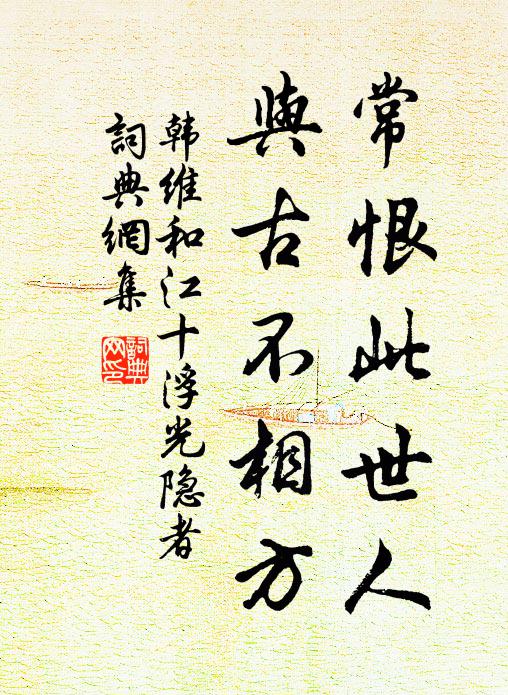 常恨此世人
與古不相方
韩維和江十浮光隐者
詞典網集
詞典
网印